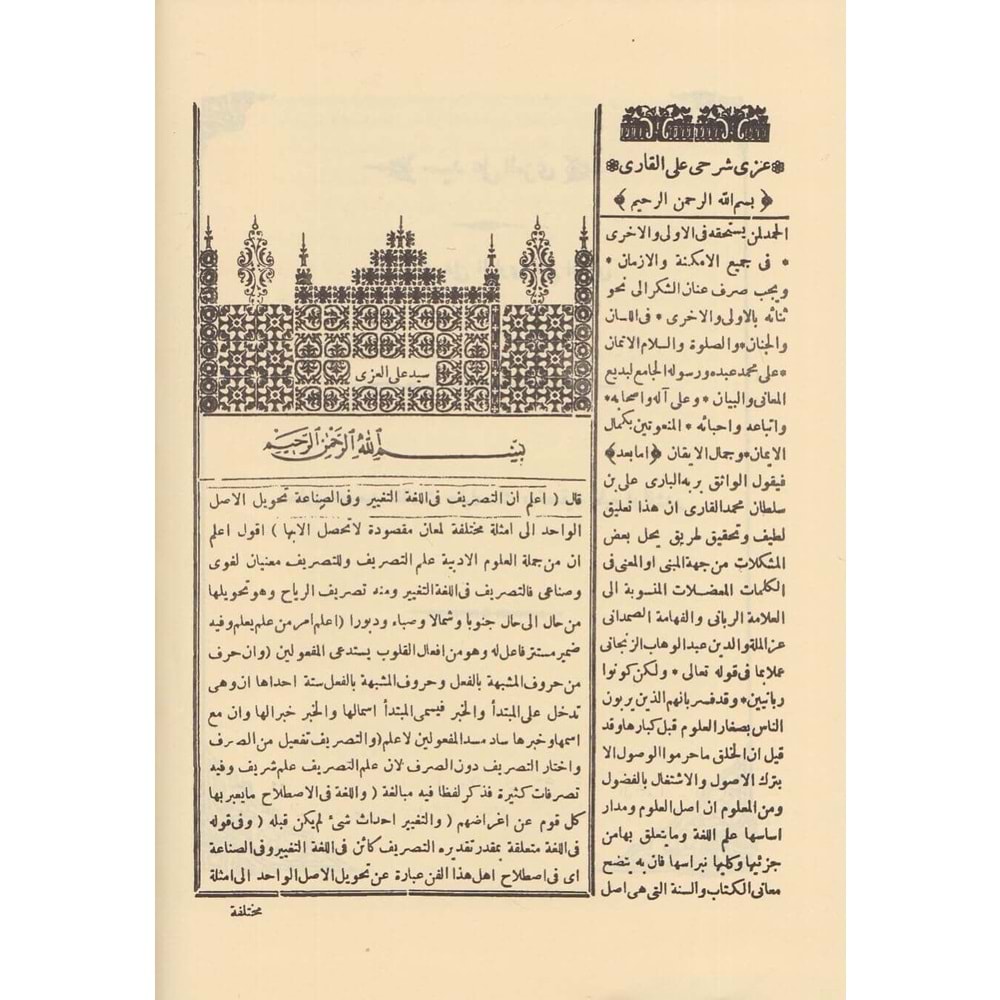 عزى شرحى على القارى
﴿ بسم الله الرحمن الرحيم ﴾
الحمدلمن يستحقه فى الاولى والاخرى
* فى جميع الامكنة والازمان *
ويجب صرف عنان الشكر الى نحو
ثنائه بالاولى والاخرى * فى اللسان
والجنان *والصلوة والسلام الاتمان
*على محمد عبده ورسوله الجامع لبديع
المعانى والبيان * وعلى آله واصحابه*
واتباعه واحبائه * المنعوتين بكمال
الايمان*وجمال الايقان ﴿امابعد﴾
فيقول الواثق بربه البارى على بن
سلطان محمد القارى ان هذا تعليق
لطيف وتحقيق لطريق يحل بعض
المشكلات من جهة المبنى اوالمعنى فى
الكلمات المعضلات المنسوبة الى
العلامة الربانى والفهامة الصمدانى
عز الملة والدين عبد الوهاب الزنجانى
عملا بما فى قوله تعالى * ولكن كونوا
ربانيين* وقد فسر بانهم الذين يربون
الناس بصغار العلوم قبل كبارها وقد
قيل ان الخلق ماحرموا الوصول الا
بترك الاصول والاشتغال بالفضول
ومن المعلوم ان اصل العلوم ومدار
اساسها علم اللغة ومايتعلق بهامن
جزئيها وكليها نبراسها فان به يتضح
معانى الكتاب والسنة التى هى اصل
سيد على العزى
بسم الله الرحمن الرحيم
قال ( اعلم ان التصريف فى اللغة التغيير وفى الصناعة تحويل الاصل
الواحد الى امثلة مختلفة لمعان مقصودة لاتحصل الابها ) اقول اعلم
ان من جملة العلوم الادبية علم التصريف وللتصريف معنيان لغوى
وصناعى فالتصريف فى اللغة التغيير ومنه تصريف الرياح وهو تحويلها
من حال الى حال جنوبا وشمالا وصباء ودبورا (اعلم امر من علم يعلم وفيه
ضمير مستتر فاعل له وهو من افعال القلوب يستدعى المفعولين (وان حرف
من حروف المشبهة بالفعل وحروف المشبهة بالفعل ستة احداها ان وهى
تدخل على المبتدأ والخبر فيسمى المبتدأ اسمالها والخبر خبرالها وان مع
اسمها وخبرها ساد مسد المفعولين لاعلم(والتصريف تفعيل من الصرف
واختار التصريف دون الصرف لان علم التصريف علم شريف وفيه
تصرفات كثيرة فذكر لفظا فيه مبالغة ( واللغة فى الاصطلاح مايعبر بها
كل قوم عن اغراضهم ( والتغيير احداث شئ لم يكن قبله ( وفى قوله
فى اللغة متعلقة بمقدر تقديره التصريف كائن فى اللغة التغيير وفى الصناعة
اى فى اصطلاح اهل هذا الفن عبارة عن تحويل الاصل الواحد الى امثلة
مختلفة